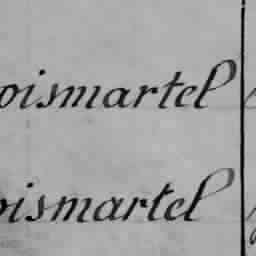 oismartel
oismartel